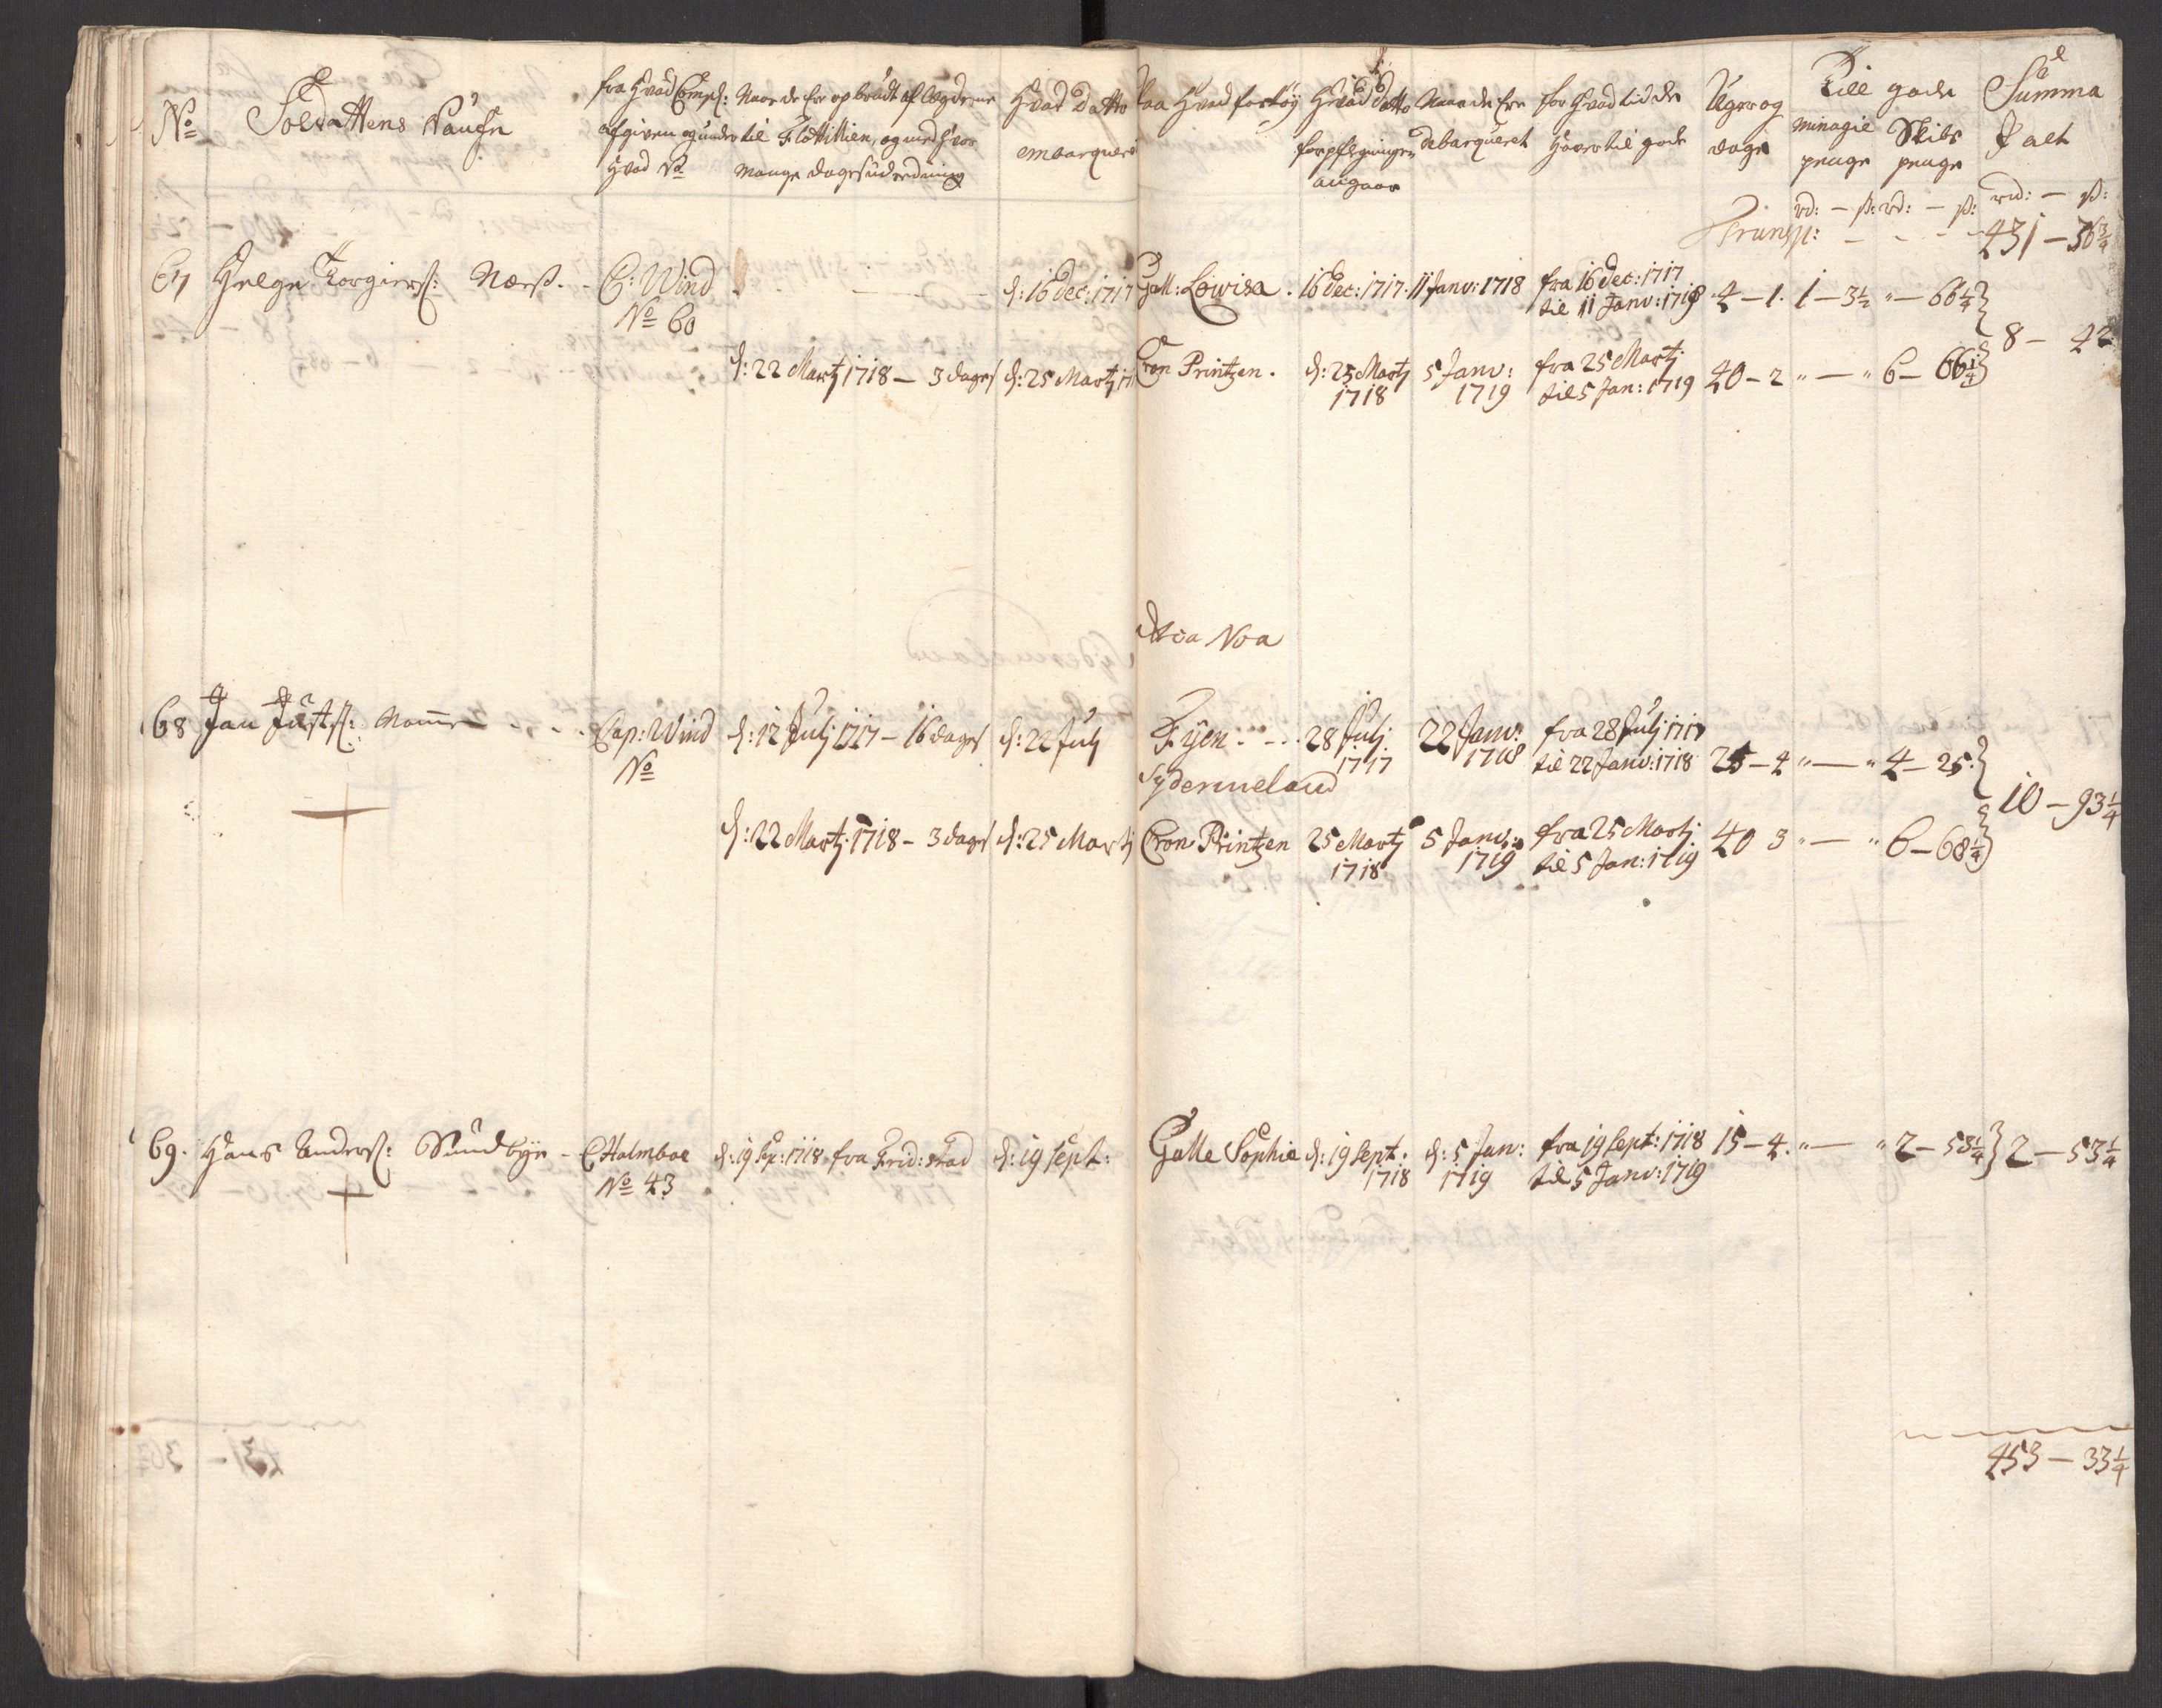 No
Soldattens Naufn
fra Hvad Comp:
afgiven og under
Hvad No
Naar de ere opbrudt af Lægderne
til Flottillien, og med Hvor
Mange dages udredning
Hvad Datto
embarqueret
Paa Hvad fartøy
Hvad Datto
forpflegningen
angaar
Naar de Ere
debarqueret
for Hvad tid de
Haver til gode
Uger og
dage
Till gode
Minagie
penge
Skibs
penge
Summa
I alt
rd: — ß: rd: — ß: rd: — ß:
Transp: - - - - 431 — 36 3/4
67 Helge Torgiers: Næss. - C: Wind
No 60
d: 16 Dec: 1717 Gall: Lowisa. 16 Dec: 1717. 11 Janv: 1718 fra 16 Dec: 1717
til 11 Janv: 1718 4 — 1. 1 — 3 1/2 " — 66 1/4
8 — 42
d: 22 Martj 1718 — 3 dages d: 25 Martj 17 Cron Printzen. d: 25 Martj 1718 5 Janv: 1719 fra 25 Martj
til 5 Jan: 1719 40 — 2 " — " 6 — 66 1/4
Noa
68 Jan Justs: - - - Cap: Wind
No
d: 12 Julj 1717 — 16 dages d: 22 Julj Fyen. - - 28 Julj 1717 22 Janv: 1718 fra 28 Julj 1717
til 22 Janv: 1718 25 — 4 " — " 4 — 25
Sydermeland
10 — 93 1/4
d: 22 Martj 1718 — 3 dages d: 25 Martj Cron Printzen 25 Martj 1718 5 Janv: 1719 fra 25 Martj
til 5 Jan: 1719 40 3 " — " 6 — 68 1/4
69. Hans Anders: Sundbye - C Halmboe
No 43
d: 19 Sep: 1718 fra Frid: stad d: 19 Sept: Galle Sophie d: 19 Sept. 1718 d: 5 Jan: 1719 fra 19 Sept: 1718
til 5 Janv: 1719 15 — 4. " — " 2 — 53 1/4 2 — 53 1/4
453 — 33 1/4